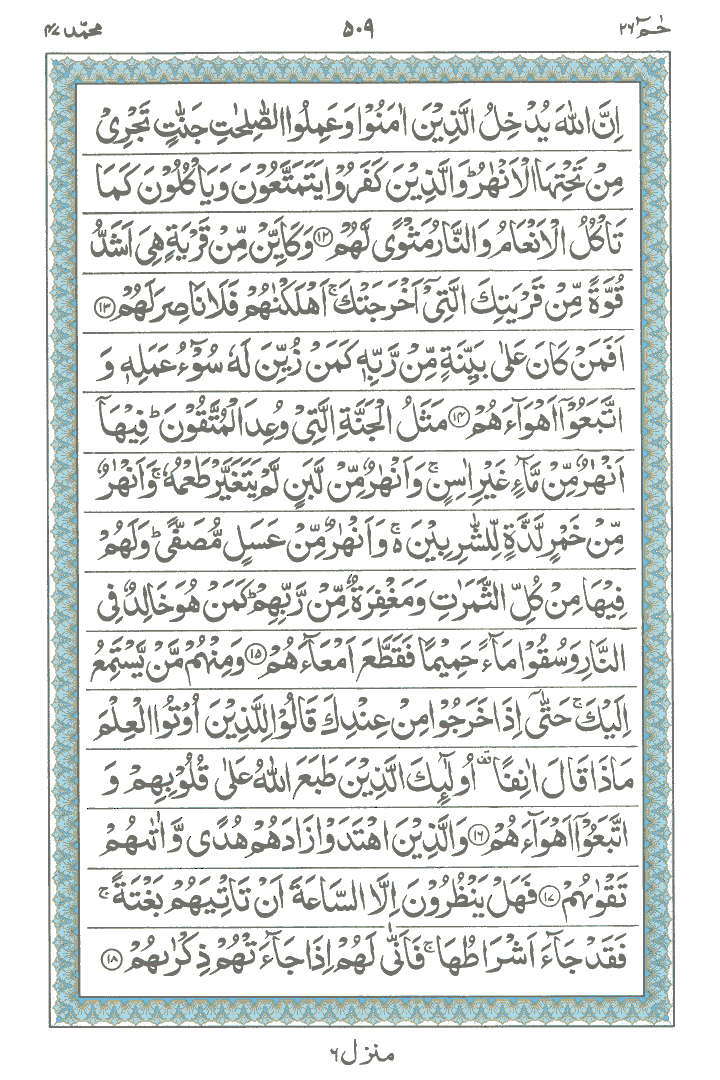 حٰمٓ ٢٦
٥٠٩
محمّد ٤٧
اِنَّ اللّٰهَ يُدْخِلُ الَّذِيْنَ اٰمَنُوْا وَعَمِلُوا الصّٰلِحٰتِ جَنّٰتٍ تَجْرِيْ
مِنْ تَحْتِهَا الْاَنْهٰرُ ؕ وَالَّذِيْنَ كَفَرُوْا يَتَمَتَّعُوْنَ وَيَاْكُلُوْنَ كَمَا
تَاْكُلُ الْاَنْعَامُ وَالنَّارُ مَثْوًى لَّهُمْ ﴿١٢﴾ وَكَاَيِّنْ مِّنْ قَرْيَةٍ هِيَ اَشَدُّ
قُوَّةً مِّنْ قَرْيَتِكَ الَّتِيْٓ اَخْرَجَتْكَ ۚ اَهْلَكْنٰهُمْ فَلَا نَاصِرَ لَهُمْ ﴿١٣﴾
اَفَمَنْ كَانَ عَلٰى بَيِّنَةٍ مِّنْ رَّبِّهٖ كَمَنْ زُيِّنَ لَهٗ سُوْٓءُ عَمَلِهٖ وَ
اتَّبَعُوْٓا اَهْوَآءَهُمْ ﴿١٤﴾ مَثَلُ الْجَنَّةِ الَّتِيْ وُعِدَ الْمُتَّقُوْنَ ؕ فِيْهَآ
اَنْهٰرٌ مِّنْ مَّآءٍ غَيْرِ اٰسِنٍ ۚ وَاَنْهٰرٌ مِّنْ لَّبَنٍ لَّمْ يَتَغَيَّرْ طَعْمُهٗ ۚ وَاَنْهٰرٌ
مِّنْ خَمْرٍ لَّذَّةٍ لِّلشّٰرِبِيْنَ ۚ۬ وَاَنْهٰرٌ مِّنْ عَسَلٍ مُّصَفًّى ؕ وَلَهُمْ
فِيْهَا مِنْ كُلِّ الثَّمَرٰتِ وَمَغْفِرَةٌ مِّنْ رَّبِّهِمْ ؕ كَمَنْ هُوَ خَالِدٌ فِي
النَّارِ وَسُقُوْا مَآءً حَمِيْمًا فَقَطَّعَ اَمْعَآءَهُمْ ﴿١٥﴾ وَمِنْهُمْ مَّنْ يَّسْتَمِعُ
اِلَيْكَ ۚ حَتّٰٓى اِذَا خَرَجُوْا مِنْ عِنْدِكَ قَالُوْا لِلَّذِيْنَ اُوْتُوا الْعِلْمَ
مَاذَا قَالَ اٰنِفًا ۫ اُولٰٓئِكَ الَّذِيْنَ طَبَعَ اللّٰهُ عَلٰى قُلُوْبِهِمْ وَ
اتَّبَعُوْٓا اَهْوَآءَهُمْ ﴿١٦﴾ وَالَّذِيْنَ اهْتَدَوْا زَادَهُمْ هُدًى وَّاٰتٰىهُمْ
تَقْوٰىهُمْ ﴿١٧﴾ فَهَلْ يَنْظُرُوْنَ اِلَّا السَّاعَةَ اَنْ تَاْتِيَهُمْ بَغْتَةً ۚ
فَقَدْ جَآءَ اَشْرَاطُهَا ۚ فَاَنّٰى لَهُمْ اِذَا جَآءَتْهُمْ ذِكْرٰىهُمْ ﴿١٨﴾
منزل ٦